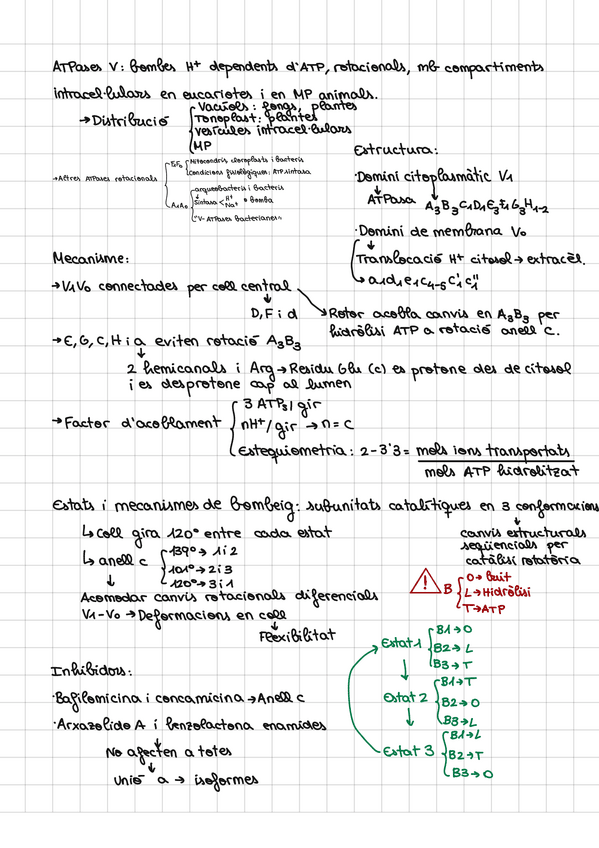 ATPases V: bombes H⁺ dependents d'ATP, rotacionals, mb compartiments
intracel·lulars en eucariotes i en MP animals.
→Distribució
Vacúols: fongs, plantes
Tonoplast: plantes
vesícules intracel·lulars
MP
→Altres ATPases rotacionals
F₁F₀
Mitocondris cloroplasts i bacteris
Condicions fisiològiques: ATP sintasa
A₁A₀
arqueobacteris i bacteris
Sintasa < H⁺ Na⁺ o Bomba
"V-ATPases bacterianes"
Estructura:
·Domini citoplasmàtic V₁
ATPasa A₃B₃C₁D₁E₃F₁G₃H₁₋₂
·Domini de membrana V₀
Translocació H⁺ citosol → extracèl.
→ a₁d₁e₁c₄₋₅c'₁c''₁
Mecanisme:
→V₁V₀ connectades per coll central
D, F i d
→Rotor acobla canvis en A₃B₃ per
hidròlisi ATP a rotació anell c.
→E, G, C, H i a eviten rotació A₃B₃
2 hemicanals i Arg → Residu Glu (c) es protone des de citosol
i es desprotone cap al lumen
→Factor d'acoblament
3 ATPs/gir
nH⁺/gir → n = c
Estequiometria: 2-3'3 = mols ions transportats
mols ATP hidrolitzat
Estats i mecanismes de bombeig: subunitats catalítiques en 3 conformacions
↳ Coll gira 120° entre cada estat
↳ anell c
139° → 1 i 2
101° → 2 i 3
120° → 3 i 1
canvis estructurals
seqüencials per
catàlisi rotatòria
Acomodar canvis rotacionals diferencials
V₁-V₀ → Deformacions en coll
Flexibilitat
! B
O → buit
L → Hidròlisi
T → ATP
Estat 1
B1 → O
B2 → L
B3 → T
Estat 2
B1 → T
B2 → O
B3 → L
Estat 3
B1 → L
B2 → T
B3 → O
Inhibidors:
·Bafilomicina i concamicina → Anell c
·Arxazolido A i benzolactona enamides
No afecten a totes
Unió a → isoformes